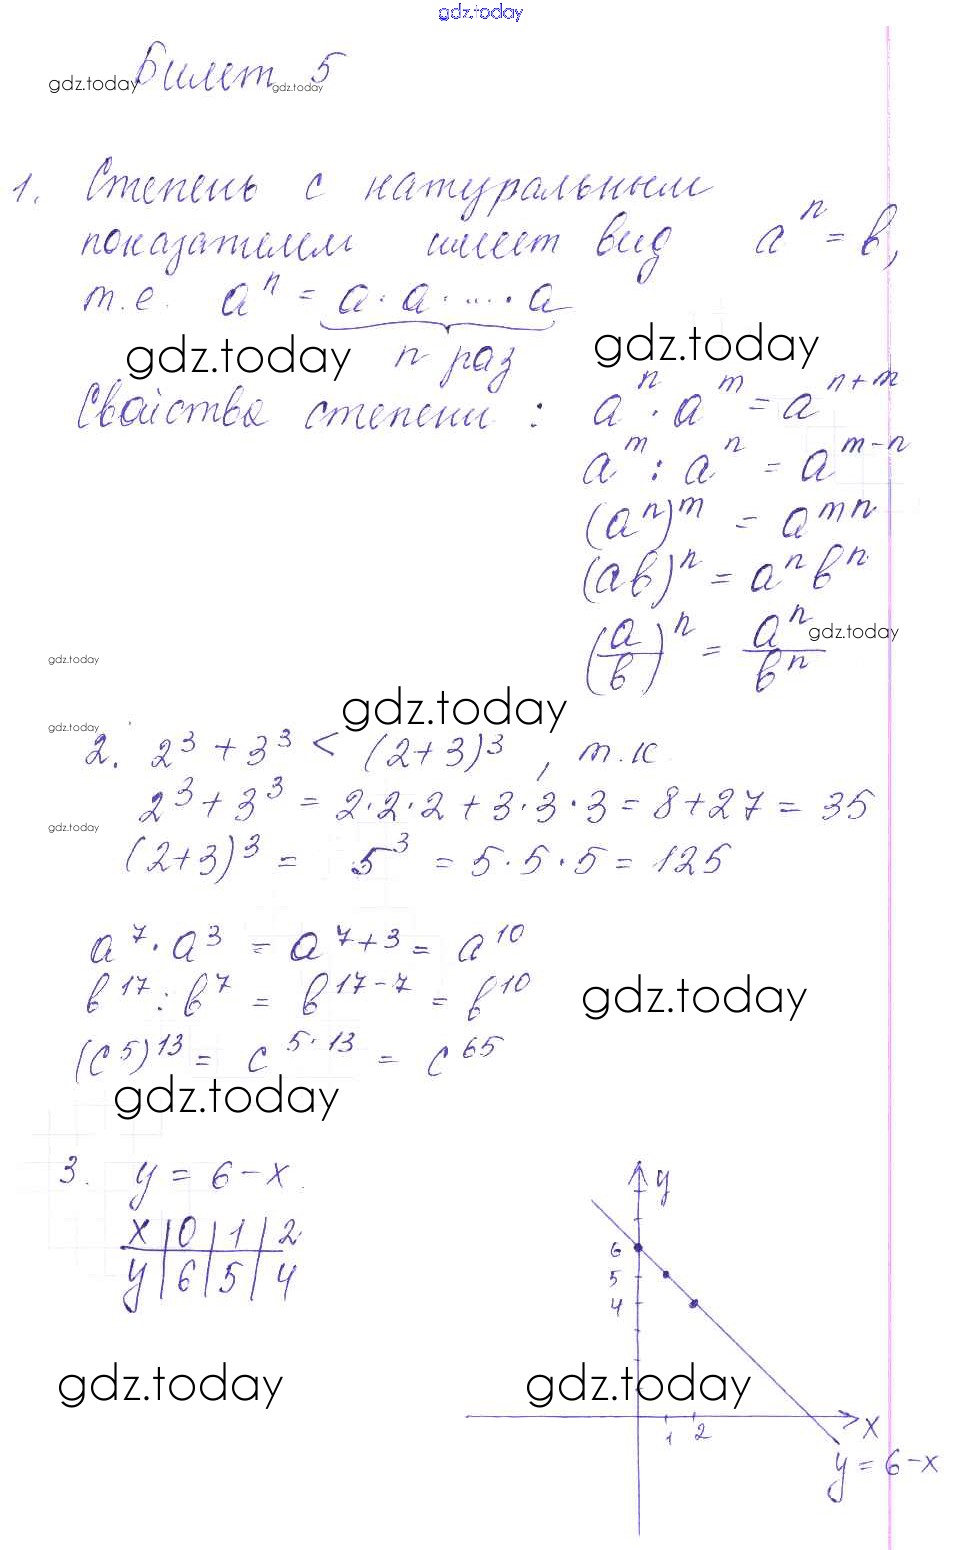 gdz.today
Билет 5
gdz.today gdz.today
1. Степень с натуральным
показателем имеет вид aⁿ = b,
т.е. aⁿ = a · a · ... · a
n раз
gdz.today gdz.today
Свойства степени : aⁿ · aᵐ = aⁿ⁺ᵐ
aᵐ : aⁿ = aᵐ⁻ⁿ
(aⁿ)ᵐ = aᵐⁿ
(ab)ⁿ = aⁿbⁿ
(a/b)ⁿ = aⁿ/bⁿ
gdz.today
gdz.today
gdz.today
gdz.today
2. 2³ + 3³ < (2+3)³, т.к
2³ + 3³ = 2·2·2 + 3·3·3 = 8+27 = 35
gdz.today
(2+3)³ = 5³ = 5·5·5 = 125
a⁷ · a³ = a⁷⁺³ = a¹⁰
b¹⁷ : b⁷ = b¹⁷⁻⁷ = b¹⁰
gdz.today
(c⁵)¹³ = c⁵·¹³ = c⁶⁵
gdz.today
3. y = 6 - x.
x | 0 | 1 | 2
y | 6 | 5 | 4
y
6
5
4
gdz.today gdz.today
1 2 x
y = 6 - x